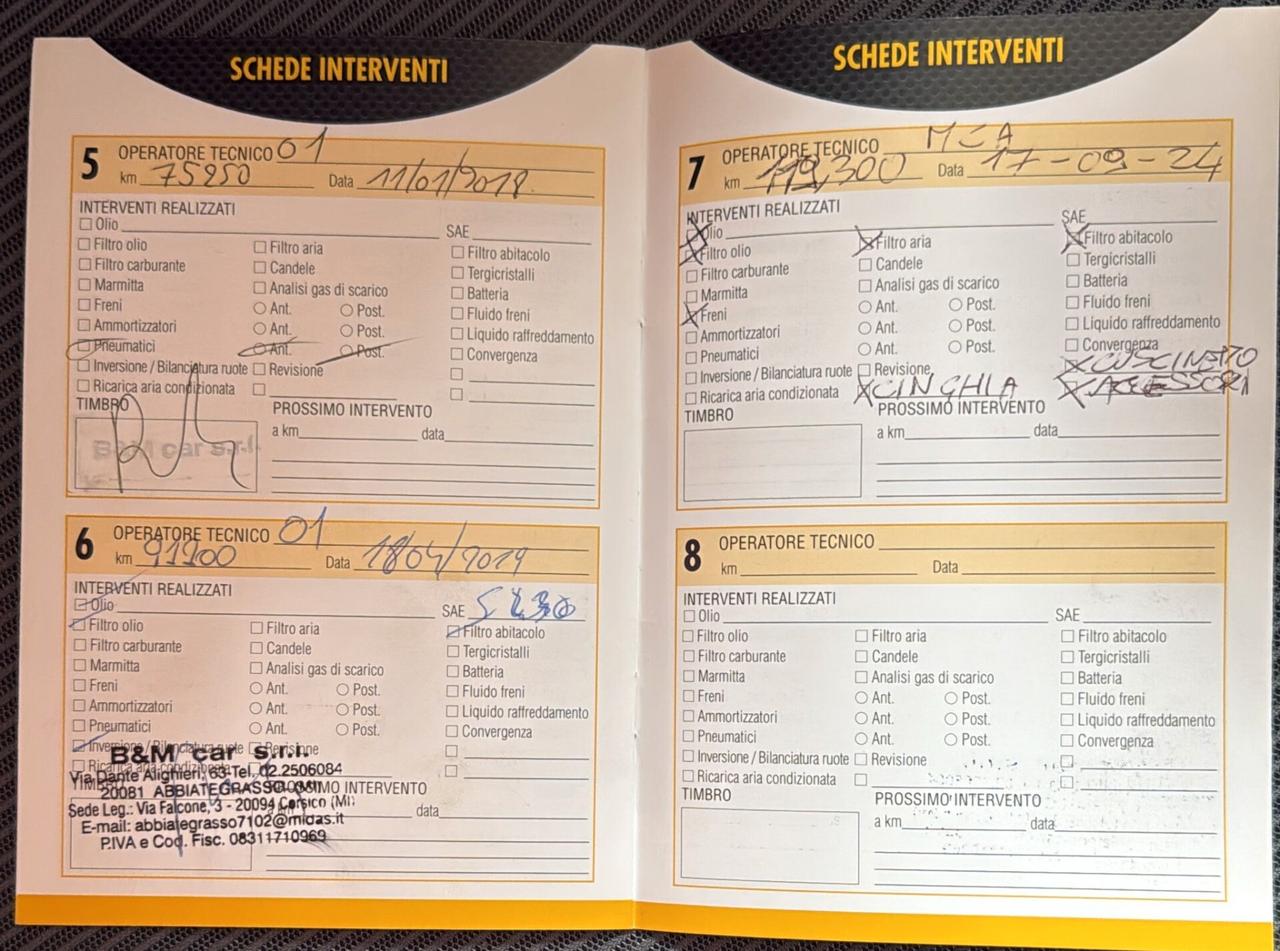 SCHEDE INTERVENTI
5 OPERATORE TECNICO 01
km 75250 Data 11/01/2018
INTERVENTI REALIZZATI
Olio SAE
Filtro olio Filtro aria Filtro abitacolo
Filtro carburante Candele Tergicristalli
Marmitta Analisi gas di scarico Batteria
Freni Ant. Post. Fluido freni
Ammortizzatori Ant. Post. Liquido raffreddamento
Pneumatici Ant. Post. Convergenza
Inversione / Bilanciatura ruote Revisione
Ricarica aria condizionata
TIMBRO PROSSIMO INTERVENTO
a km data
B&M car s.r.l.
6 OPERATORE TECNICO 01
km 91200 Data 18/04/2019
INTERVENTI REALIZZATI
Olio SAE
Filtro olio Filtro aria Filtro abitacolo
Filtro carburante Candele Tergicristalli
Marmitta Analisi gas di scarico Batteria
Freni Ant. Post. Fluido freni
Ammortizzatori Ant. Post. Liquido raffreddamento
Pneumatici Ant. Post. Convergenza
Inversione / Bilanciatura ruote Revisione
Ricarica aria condizionata
TIMBRO PROSSIMO INTERVENTO
data
B&M car s.r.l.
Via Dante Alighieri, 63 Tel. 02.2506084
20081 ABBIATEGRASSO (MI)
Sede Leg.: Via Falcone, 3 - 20094 Corsico (MI)
E-mail: abbiategrasso7102@midas.it
P.IVA e Cod. Fisc. 08311710969
SCHEDE INTERVENTI
7 OPERATORE TECNICO MCA
km 119,300 Data 17-09-24
INTERVENTI REALIZZATI
Olio SAE
Filtro olio Filtro aria Filtro abitacolo
Filtro carburante Candele Tergicristalli
Marmitta Analisi gas di scarico Batteria
Freni Ant. Post. Fluido freni
Ammortizzatori Ant. Post. Liquido raffreddamento
Pneumatici Ant. Post. Convergenza
Inversione / Bilanciatura ruote Revisione CUSCINETTO
Ricarica aria condizionata CINGHIA ACCESSORI
TIMBRO PROSSIMO INTERVENTO
a km data
8 OPERATORE TECNICO
km Data
INTERVENTI REALIZZATI
Olio SAE
Filtro olio Filtro aria Filtro abitacolo
Filtro carburante Candele Tergicristalli
Marmitta Analisi gas di scarico Batteria
Freni Ant. Post. Fluido freni
Ammortizzatori Ant. Post. Liquido raffreddamento
Pneumatici Ant. Post. Convergenza
Inversione / Bilanciatura ruote Revisione
Ricarica aria condizionata
TIMBRO PROSSIMO INTERVENTO
a km data